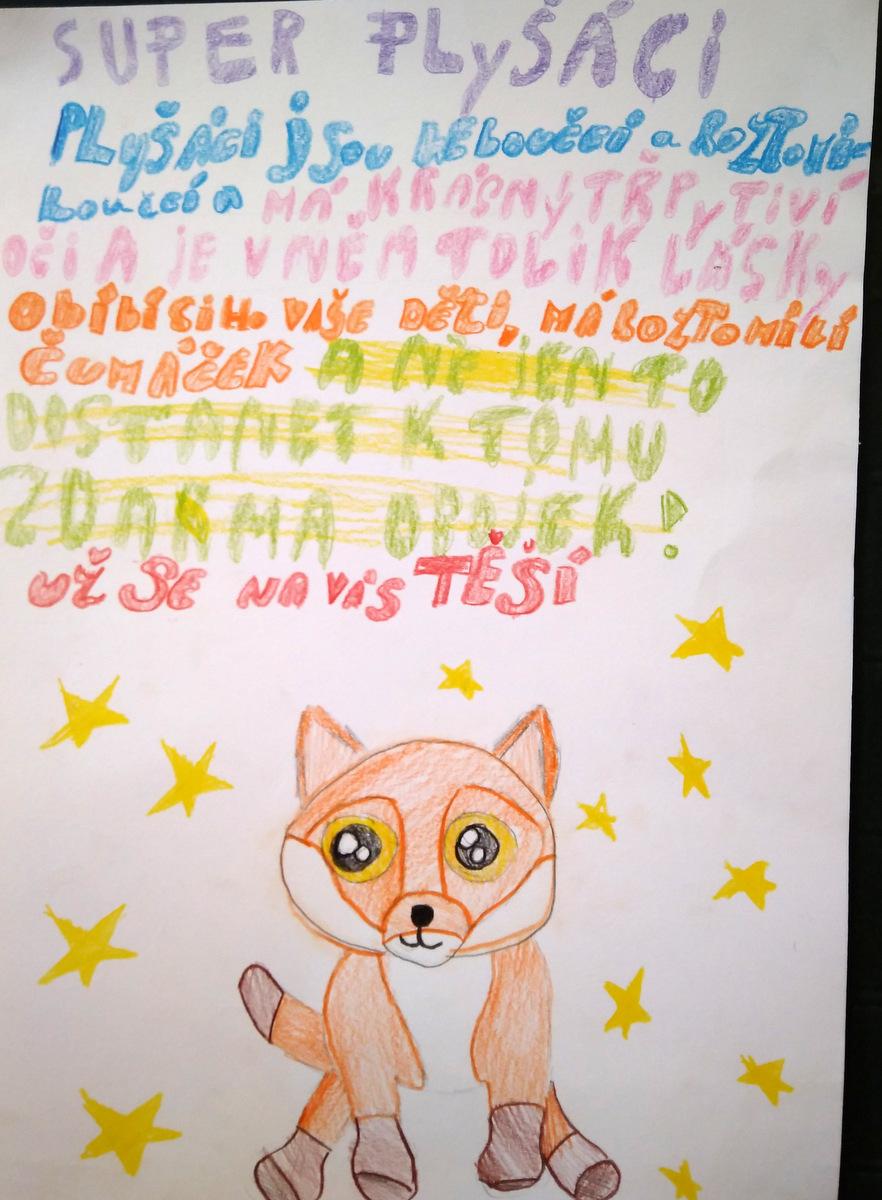 SUPER PLyŠÁCI
PLyŠÁCI jSou HEBoučcí a RoZTomi-
Loučcí a MÁ KRÁSNÝ TŘPyTIVÍ
OČI A JE V NĚM TOLIK LÁSKy
OBlíBí Si Ho VAŠE DĚTI, MÁ ROZTOMILÍ
ČUMÁČEK A NE jEN TO
DOSTANET K TOMU
ZDARMA OBOJEK!
UŽ SE NA VÁS TĚŠÍ